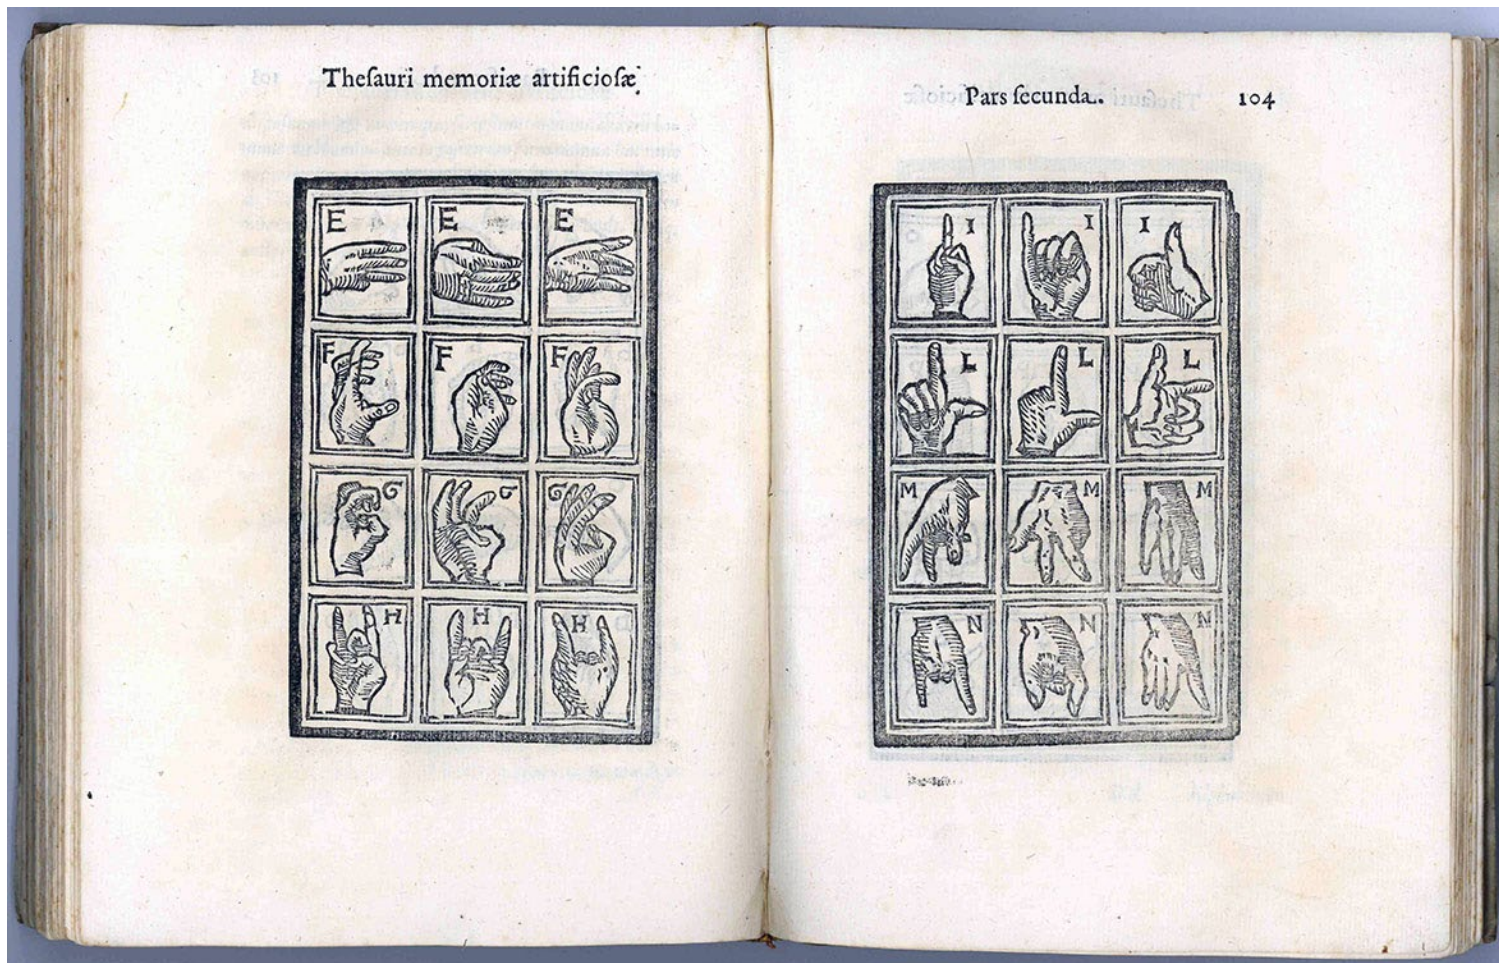 Theſauri memoriæ artificioſæ
E E E
F F F
G G G
H H H
Pars ſecunda. 104
I I I
L L L
M M M
N N N